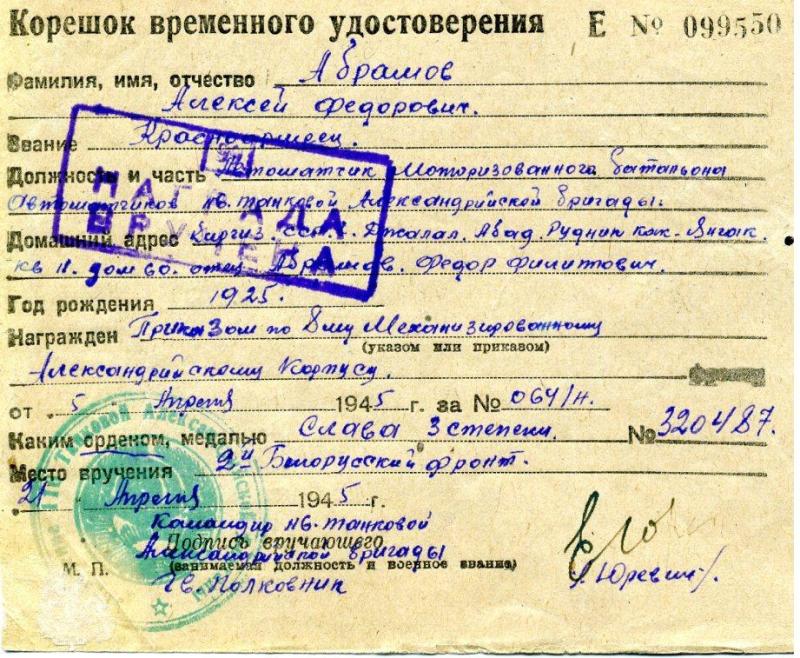 Корешок временного удостоверения Е № 099550
Фамилия, имя, отчество Абрамов
Алексей Федорович.
Звание Красноармеец.
НАГРАДА
ВРУЧЕНА
Должность и часть Автоматчик Моторизованного батальона
Автоматчиков гв. танковой Александрийской бригады.
Домашний адрес Киргиз ССР г. Джалал. Абад. Рудник кок-Янгак.
кв 11. дом 60. отец Абрамов. Федор Филиппович.
Год рождения 1925.
Награжден Приказом по 8му Механизированному
(указом или приказом)
Александрийскому Корпусу.
от 5 Апреля 1945 г. за № 064/н.
Каким орденом, медалью Слава 3 степени. № 320487.
Место вручения 2й Белорусский фронт.
21 Апреля 1945 г.
Командир гв. танковой
Подпись вручающего
Александрийской бригады
М. П. (занимаемая должность и военное звание)
Гв. Полковник /Юревич/.